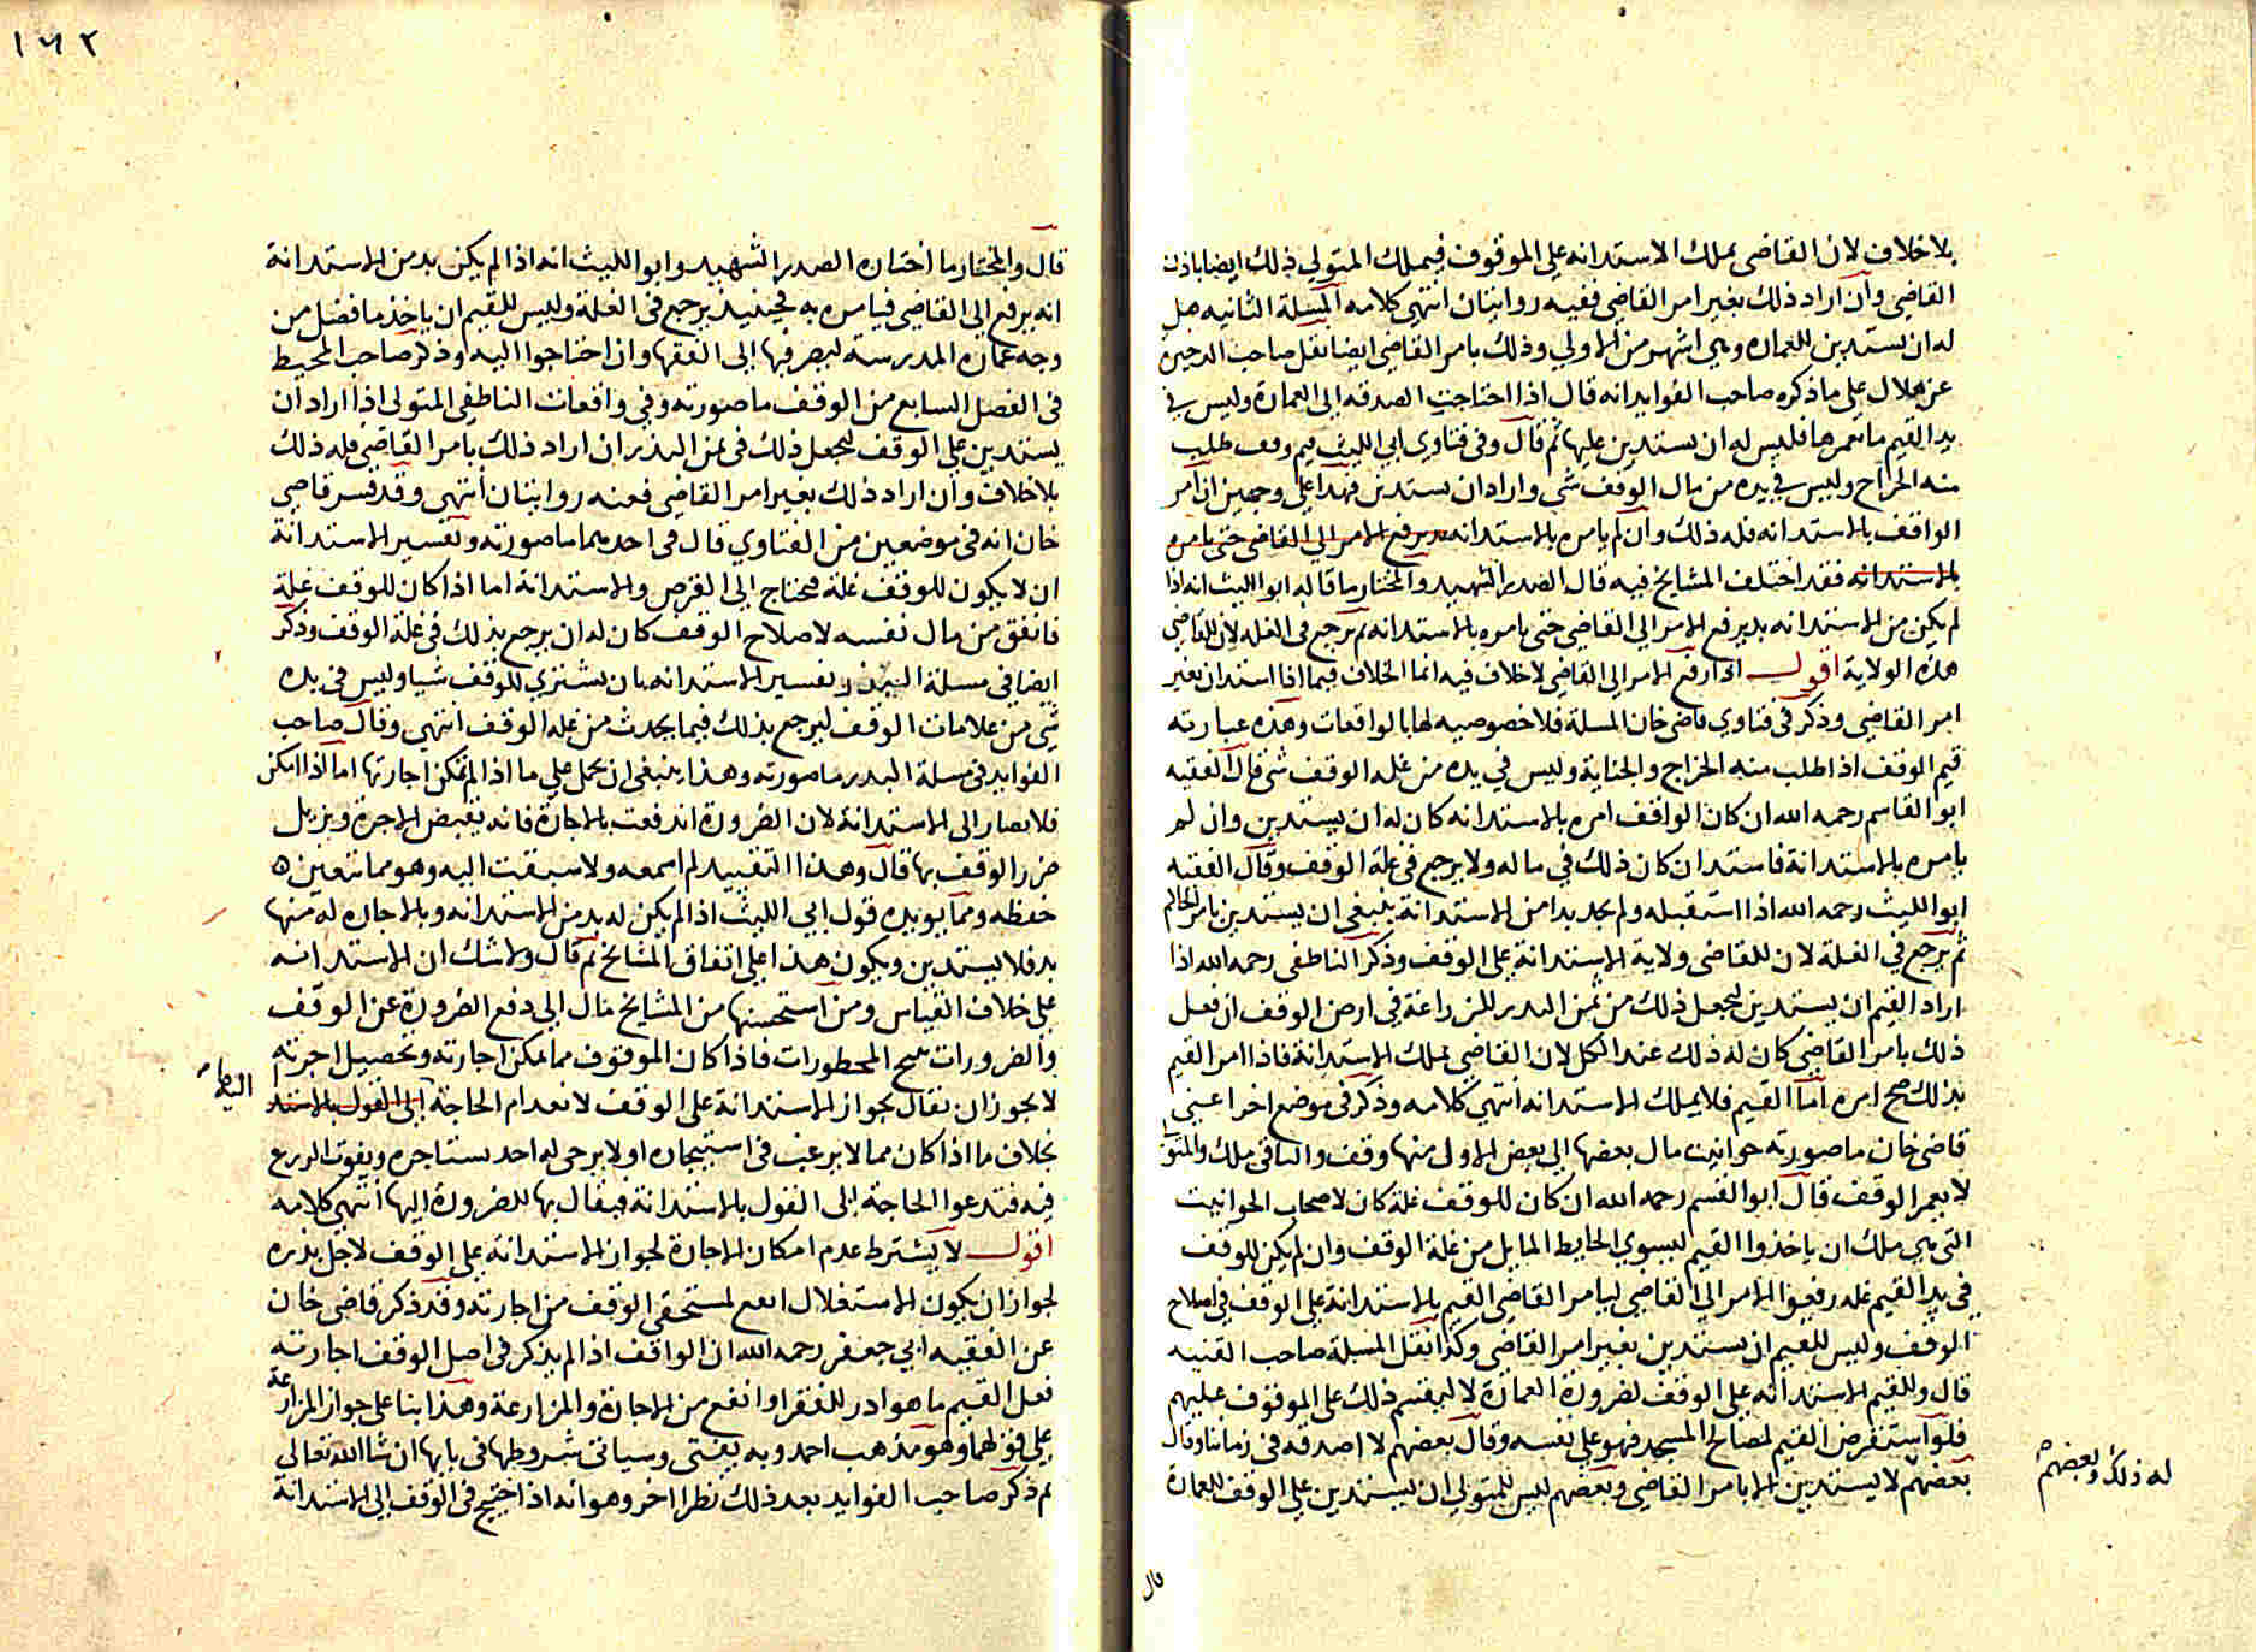 بلا خلاف لان القاضى يملك الاستدانه على الموقوف فيملك المتولي ذلك ايضا باذن
القاضي وان اراد ذلك بغير امر القاضي ففيه روايتان انتهى كلامه المسلة الثانيه هل
له ان يستدين للعماره وهي اشهر من الاولي وذلك بامر القاضي ايضا نقل صاحب الدخيرة
عن هلال على ما ذكره صاحب الفوايد انه قال اذا احتاجت الصدقه الى العمارة وليس في
يد القيم ما يعمرها فليس له ان يستدين عليها ثم قال وفى فتاوي ابى الليث قيم وقف طلب
منه الخراج وليس في يده من مال الوقف شي واراد ان يستدين فهذا على وجهين ان امر
الواقف بالاستدانه فله ذلك وان لم يامره بالاستدانه يرفع الامر الى القاضى حتى يامره
بالاستدانه فقد اختلف المشايخ فيه قال الصدر الشهيد والمختار ما قاله ابو الليث انه اذا
لم يكن من الاستدانه بد يرفع الامر الي القاضي حتى يامره بالاستدانه ثم يرجع فى الغله لان للقاضي
هذه الولاية اقول اذا رفع الامر الى القاضى لا خلاف فيه انما الخلاف فيما اذا استدان بغير
امر القاضي وذكر فى فتاوي قاضى خان المسلة فلا خصوصيه لها بالواقعات وهذه عبارته
قيم الوقف اذا طلب منه الخراج والجناية وليس في يده من غله الوقف شى قال الفقيه
ابو القاسم رحمه الله ان كان الواقف امره بالاستدانه كان له ان يستدين وان لم
يامره بالاستدانة فاستدان كان ذلك في ماله ولا يرجع فى غلة الوقف وقال الفقيه
ابو الليث رحمه الله اذا استقبله ولم يجد بدا من الاستدانة ينبغى ان يستدين بامر الحاكم
ثم يرجع في الغلة لان للقاضى ولاية الاستدانة على الوقف وذكر الناطفى رحمه الله اذا
اراد القيم ان يستدين ليجعل ذلك من ثمن البدر للزراعة في ارض الوقف ان فعل
ذلك بامر القاضي كان له ذلك عند الكل لان القاضي يملك الاستدانة فاذا امر القيم
بذلك صح امره اما القيم فلا يملك الاستدانه انتهى كلامه وذكر فى موضع اخر اعنى
قاضى خان ما صورته حوانيت مال بعضها الى بعض الاول منها وقف والباقى ملك والمتو
لا يعمر الوقف قال ابو القسم رحمه الله ان كان للوقف غلة كان لاصحاب الحوانيت
التى هى ملك ان ياخذوا القيم ليسوي الحايط المايل من غلة الوقف وان لم يكن للوقف
في يد القيم غله رفعوا الامر الى القاضى ليامر القاضي القيم بالاستدانة على الوقف في اصلاح
الوقف وليس للقيم ان يستدين بغير امر القاضى وكذا نقل المسلة صاحب القنيه
قال وللقيم الاستدانه على الوقف لضرورة العمارة لا ليقسم ذلك على الموقوف عليهم
فلو استقرض القيم لمصالح المسجد فهو على نفسه وقال بعضهم لا اصدقه فى زماننا وقال
بعضهم لا يستدين الا بامر القاضي وبعضهم ليس للمتولى ان يستدين على الوقف للعمارة
له ذلك وبعضهم
قال
١٦٢
قال والمختار ما اختاره الصدر الشهيد وابو الليث انه اذا لم يكن بد من الاستدانة
انه يرفع الى القاضي فيامره به فحينيذ يرجع فى الغلة وليس للقيم ان ياخذ ما فضل من
وجه عماره المدرسة ليصرفها الى الفقها وان احتاجوا اليه وذكر صاحب المحيط
فى الفصل السابع من الوقف ما صورته وفي واقعات الناطفى المتولى اذا اراد ان
يستدين على الوقف ليجعل ذلك فى ثمن البذر ان اراد ذلك بامر القاضي فله ذلك
بلا خلاف وان اراد ذلك بغير امر القاضى فعنه روايتان انتهى وقد فسر قاضى
خان انه فى موضعين من الفتاوي قال فى احدهما ما صورته وتفسير الاستدانة
ان لا يكون للوقف غلة فيحتاج الي القرض والاستدانة اما اذا كان للوقف غلة
فانفق من مال نفسه لاصلاح الوقف كان له ان يرجع بذلك فى غلة الوقف وذكر
ايضا في مسلة البذر تفسير الاستدانه بان يشتري للوقف شيا وليس فى يده
شى من علامات الوقف ليرجع بذلك فيما يحدث من غله الوقف انتهى وقال صاحب
الفوايد فى مسلة البدر ما صورته وهذا ينبغى ان يحمل على ما اذا لم تمكن اجارتها اما اذا امكن
فلا يصار الى الاستدانة لان الضرورة اندفعت بالاجارة فانه يقبض الاجرة ويزيل
ضرر الوقف بها قال وهذا التقييد لم اسمعه ولا سبقت اليه وهو مما يتعين
حفظه ومما يويده قول ابى الليث اذا لم يكن له بد من الاستدانه وبالاجاره له منها
بد فلا يستدين ويكون هذا على اتفاق المشايخ ثم قال ولا شك ان الاستدانه
على خلاف القياس ومن استحسنها من المشايخ مال الى دفع الضرورة عن الوقف
والضرورات تبيح المحظورات فاذا كان الموقوف مما يمكن اجارته وتحصيل اجرته
لا يجوز ان يقال بجواز الاستدانة على الوقف لانعدام الحاجة الى القول بالاستد
اليها
بخلاف ما اذا كان مما لا يرغب فى استيجاره او لا يرجى له احد يستاجره ويفوت الزرع
فيه فتدعوا الحاجة الى القول بالاستدانة فيقال بها للضرورة اليها انتهى كلامه
اقول لا يشترط عدم امكان الاجارة لجواز الاستدانة على الوقف لاجل بذره
لجواز ان يكون الاستغلال انفع لمستحقى الوقف من اجارته وقد ذكر قاضى خان
عن الفقيه ابي جعفر رحمه الله ان الواقف اذا لم يذكر فى اصل الوقف اجارته
فعل القيم ما هو ادر للفقرا وانفع من الاجارة والمزارعة وهذا بنا على جواز المزارعة
على قولهما وهو مذهب احمد وبه يفتى وسياتى شروطها فى بابها ان شا الله تعالى
ثم ذكر صاحب الفوايد بعد ذلك نظرا اخر وهو انه اذا احتيج فى الوقف الى الاستدانة